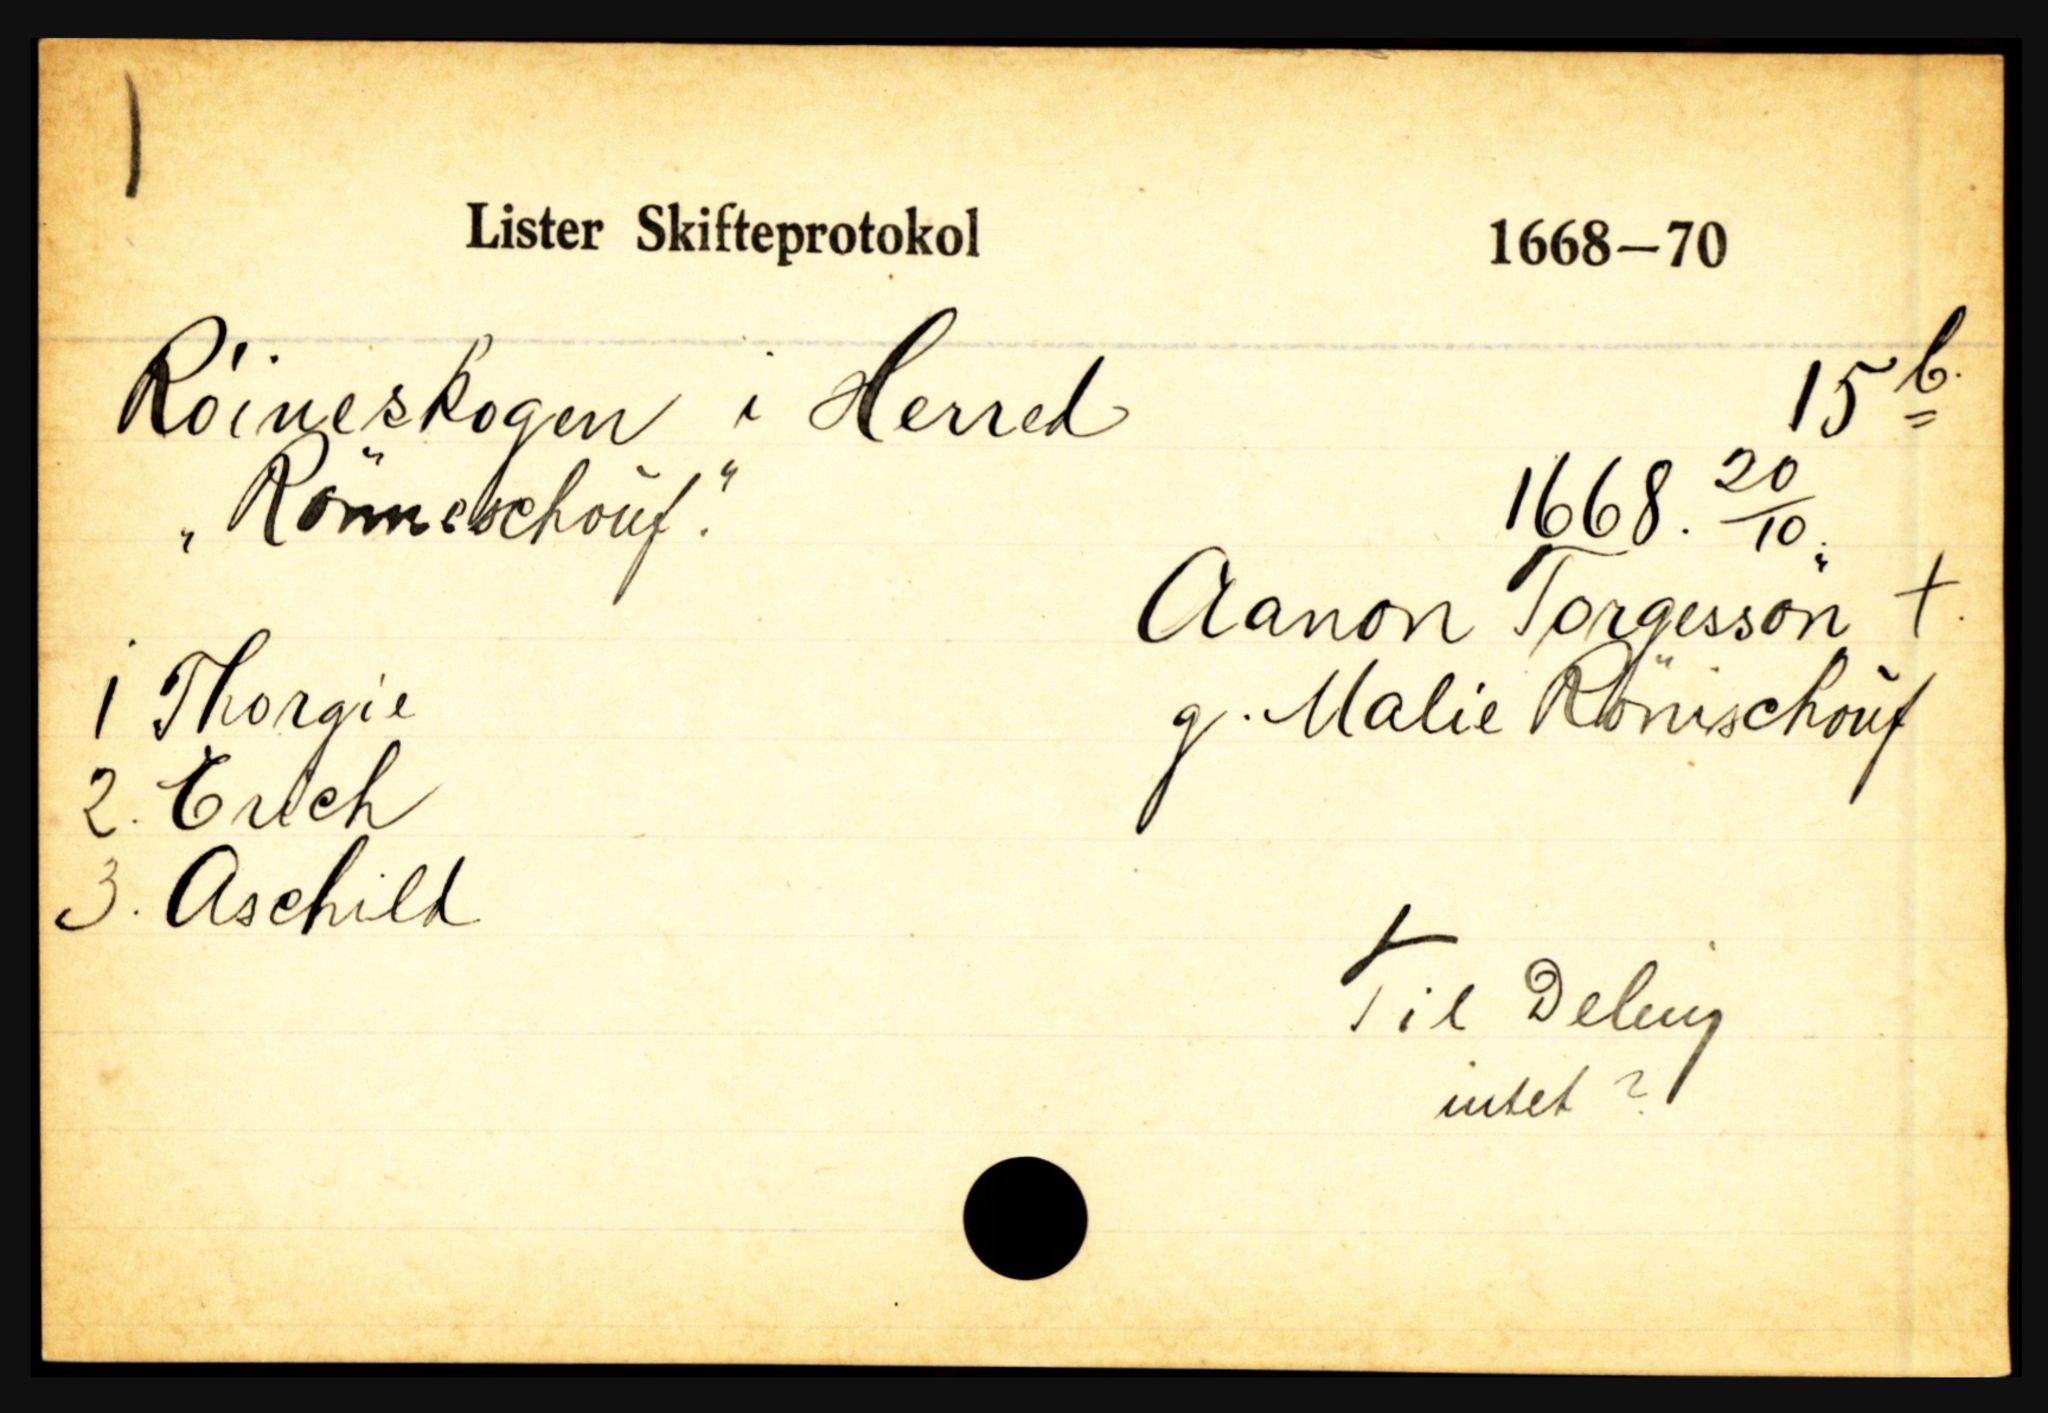 Lister Skifteprotokol 1668—70
Röineskogen i Herred 15 b.
„Rönneschoŭf." 1668. 20/10.
Aanon Torgessön †.
1 Thorgie g. Malie Rönischoŭf
2. Erich
3. Aschild
Til Deling
intet ?